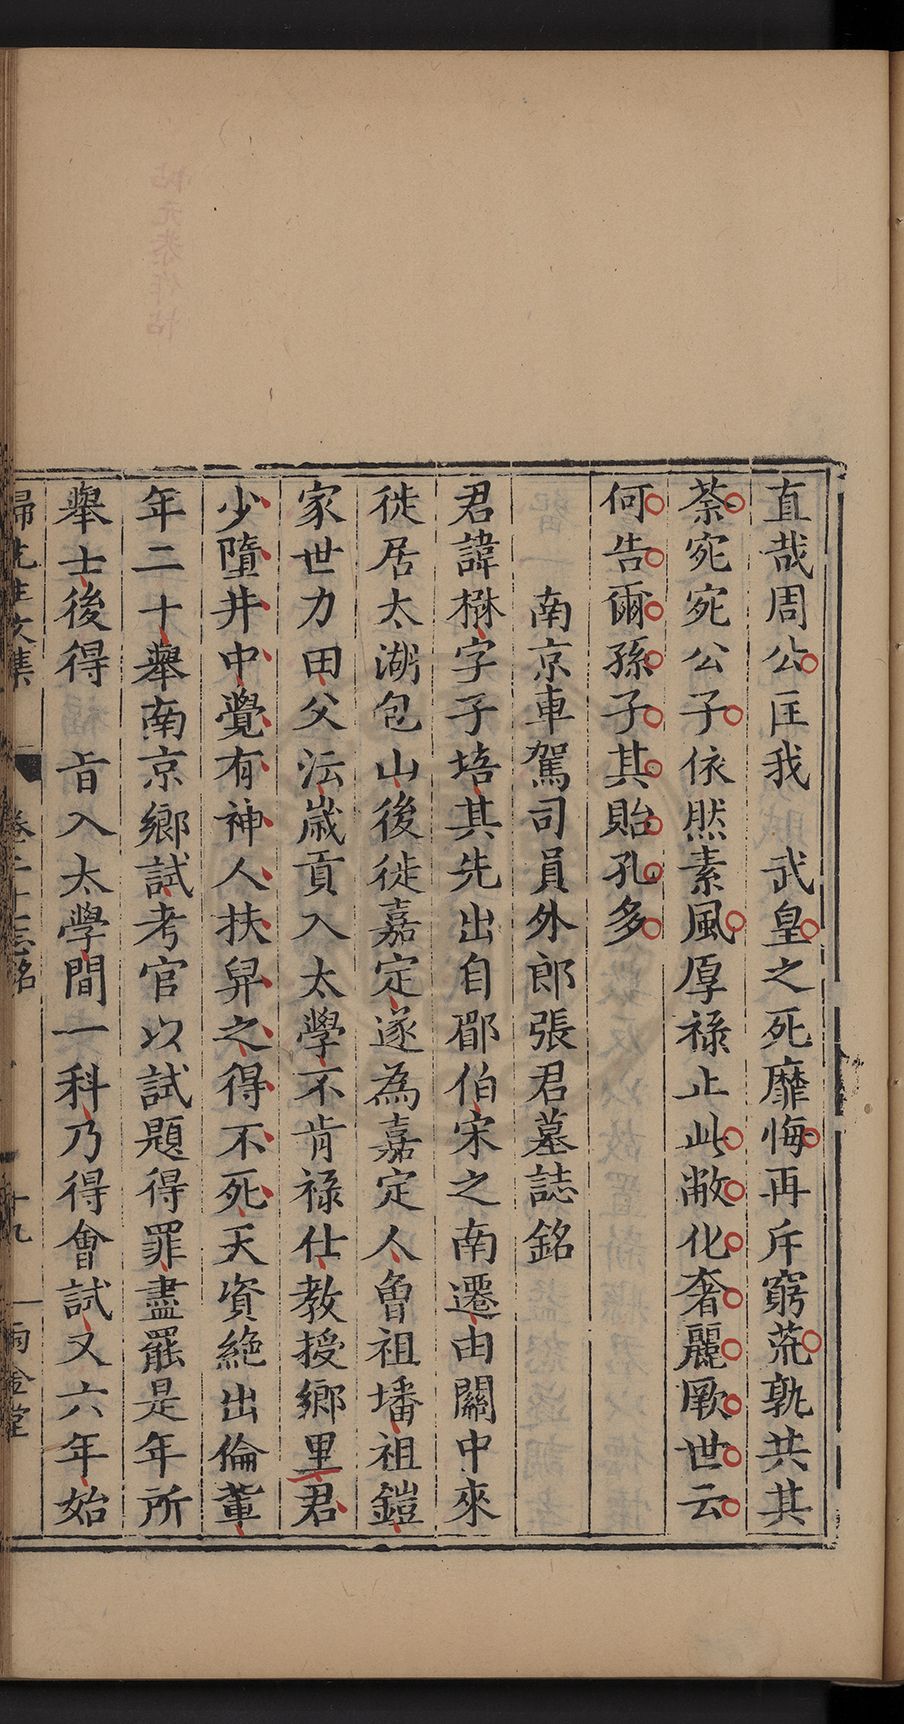 直哉周公匡我　武皇之死靡悔再斥窮荒孰共其
荼宛宛公子依然素風厚祿止此敝化奢麗厥世云
何告爾孫子其貽孔多
南京車駕司員外郎張君墓誌銘
君諱楙字子培其先出自郿伯宋之南遷由關中來
徙居太湖包山後徙嘉定遂為嘉定人曾祖墦祖鎧
家世力田父沄歲貢入太學不肯祿仕教授鄉里君
少墮井中覺有神人扶舁之得不死天資絶出倫輩
年二十舉南京鄉試考官以試題得罪盡罷是年所
舉士後得　旨入太學間一科乃得會試又六年始
歸先生文集　卷二十誌銘　十九　雨金堂